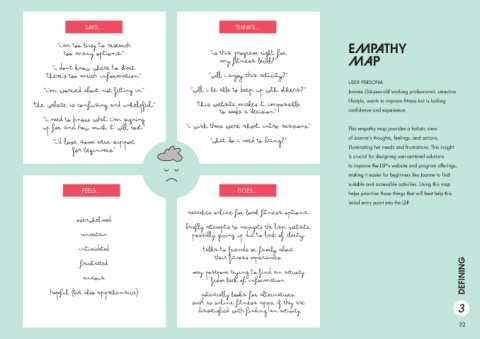 SAYS...
"i'm too busy to research
too many options."
"i don't know where to start
there's too much information"
"i'm worried about not fitting in"
"the website is confusing and unhelpful"
"i need to know what i'm signing
up for and how much it will cost"
"i'd love some extra support
for beginners"
THINKS...
"is this program right for
my fitness level?"
"will i enjoy this activity?"
"will i be able to keep up with others?"
"this website makes it impossible
to make a decision"
"i wish there were short intro sessions"
"what do i need to bring?"
FEELS...
overwhelmed
uncertain
intimidated
frustrated
anxious
hopeful (but also apprehensive)
DOES...
searches online for local fitness options
briefly attempts to navigate the LSP website,
possibly giving up due to lack of clarity
talks to friends or family about
their fitness experiences
may postpone trying to find an activity
from lack of information
potentially looks for alternatives
such as online fitness apps, if they are
dissatisfied with finding an activity
EMPATHY
MAP
USER PERSONA
Joanna (34-year-old working professional, inactive
lifestyle, wants to improve fitness but is lacking
confidence and experience.
This empathy map provides a holistic view
of Joanne's thoughts, feelings, and actions,
illuminating her needs and frustrations. This insight
is crucial for designing user-centered solutions
to improve the LSP's website and program offerings,
making it easier for beginners like Joanne to find
suitable and accessible activities. Using this map
helps prioritise those things that will best help this
initial entry point into the LSP.
DEFINING
3
32